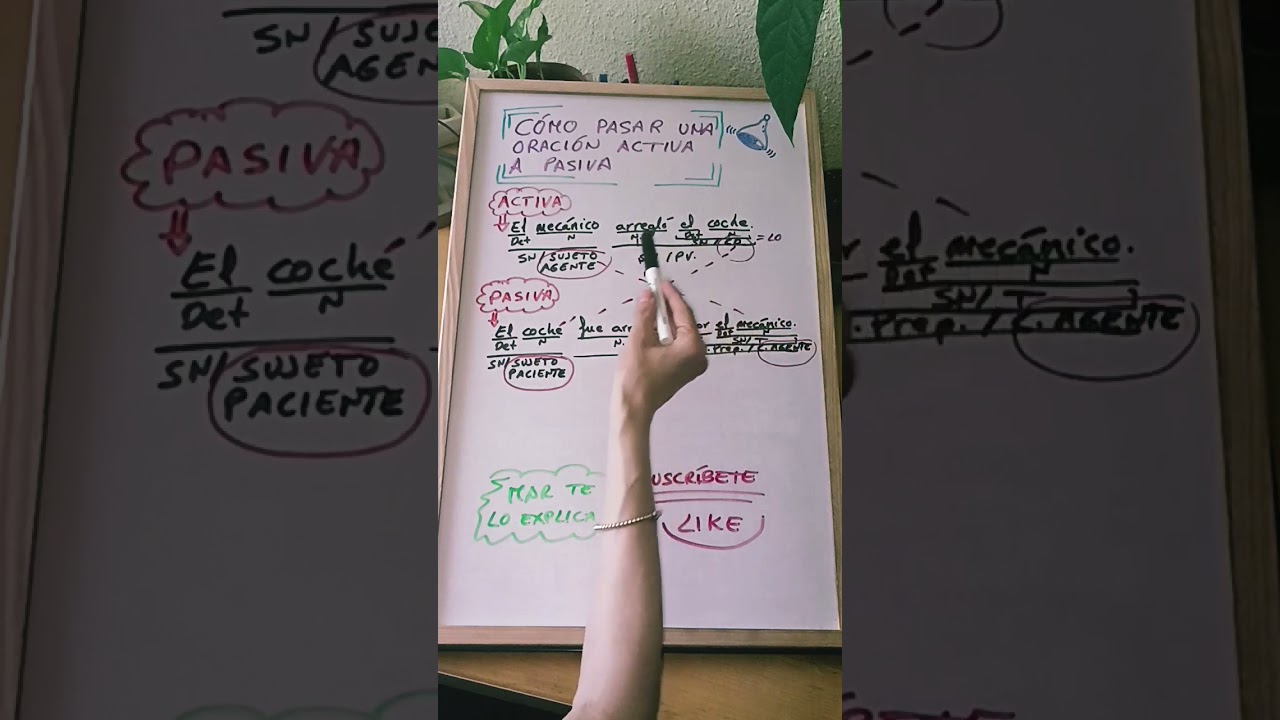 CÓMO PASAR UNA
ORACIÓN ACTIVA
A PASIVA
ACTIVA
El mecánico arregló el coche.
Det N N Det N
SN / CD = LO
SN / SUJETO / PV.
AGENTE
PASIVA
El coché fue arr or el mecánico.
Det N N. Det N
SN / T
SN / SUJETO . Prep. / C. AGENTE
PACIENTE
MAR TE
LO EXPLICA
USCRÍBETE
LIKE
SN / SUJETO
AGENTE
PASIVA
El coché
Det N
SN / SUJETO
PACIENTE
or el mecánico.
Det N
SN / T
. Prep. / C. AGENTE